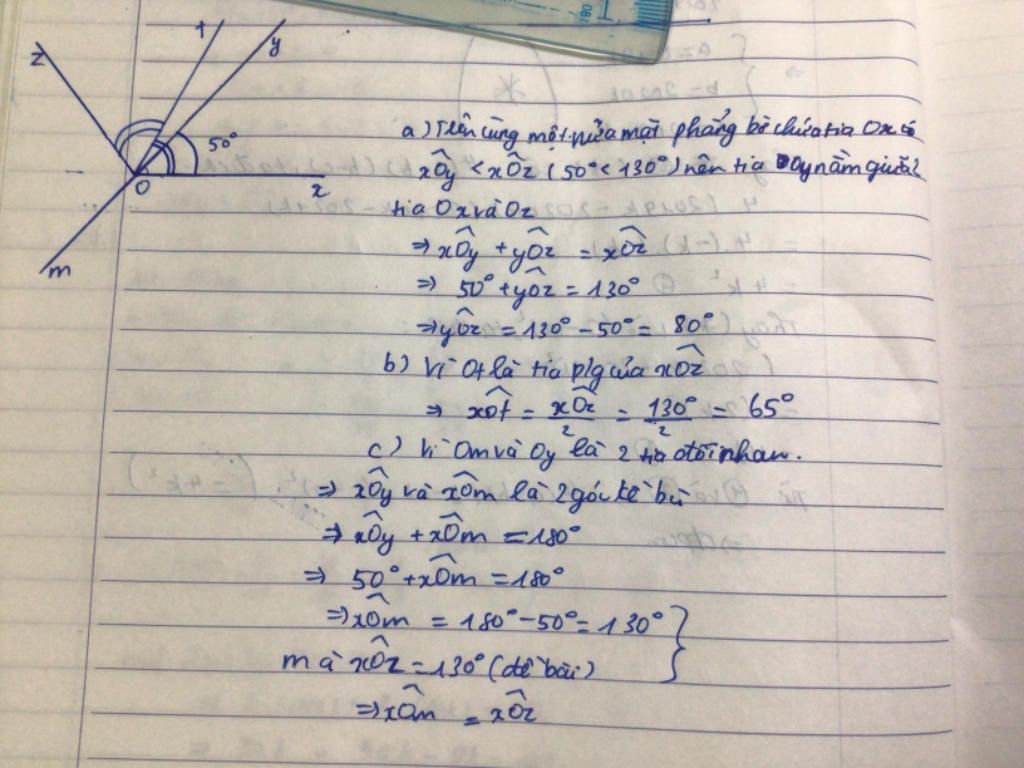 z
t
y
50°
O
x
m
a) Trên cùng một nửa mặt phẳng bờ chứa tia Ox có
xÔy < xÔz (50° < 130°) nên tia Oy nằm giữa 2
tia Ox và Oz
⇒ xÔy + yÔz = xÔz
⇒ 50° + yÔz = 130°
⇒ yÔz = 130° - 50° = 80°
b) Vì Ot là tia p/g của xÔz
⇒ xÔt = xÔz/2 = 130°/2 = 65°
c) Vì Om và Oy là 2 tia đối nhau.
⇒ xÔy và xÔm là 2 góc kề bù
⇒ xÔy + xÔm = 180°
⇒ 50° + xÔm = 180°
⇒ xÔm = 180° - 50° = 130°
mà xÔz = 130° (đề bài)
⇒ xÔm = xÔz